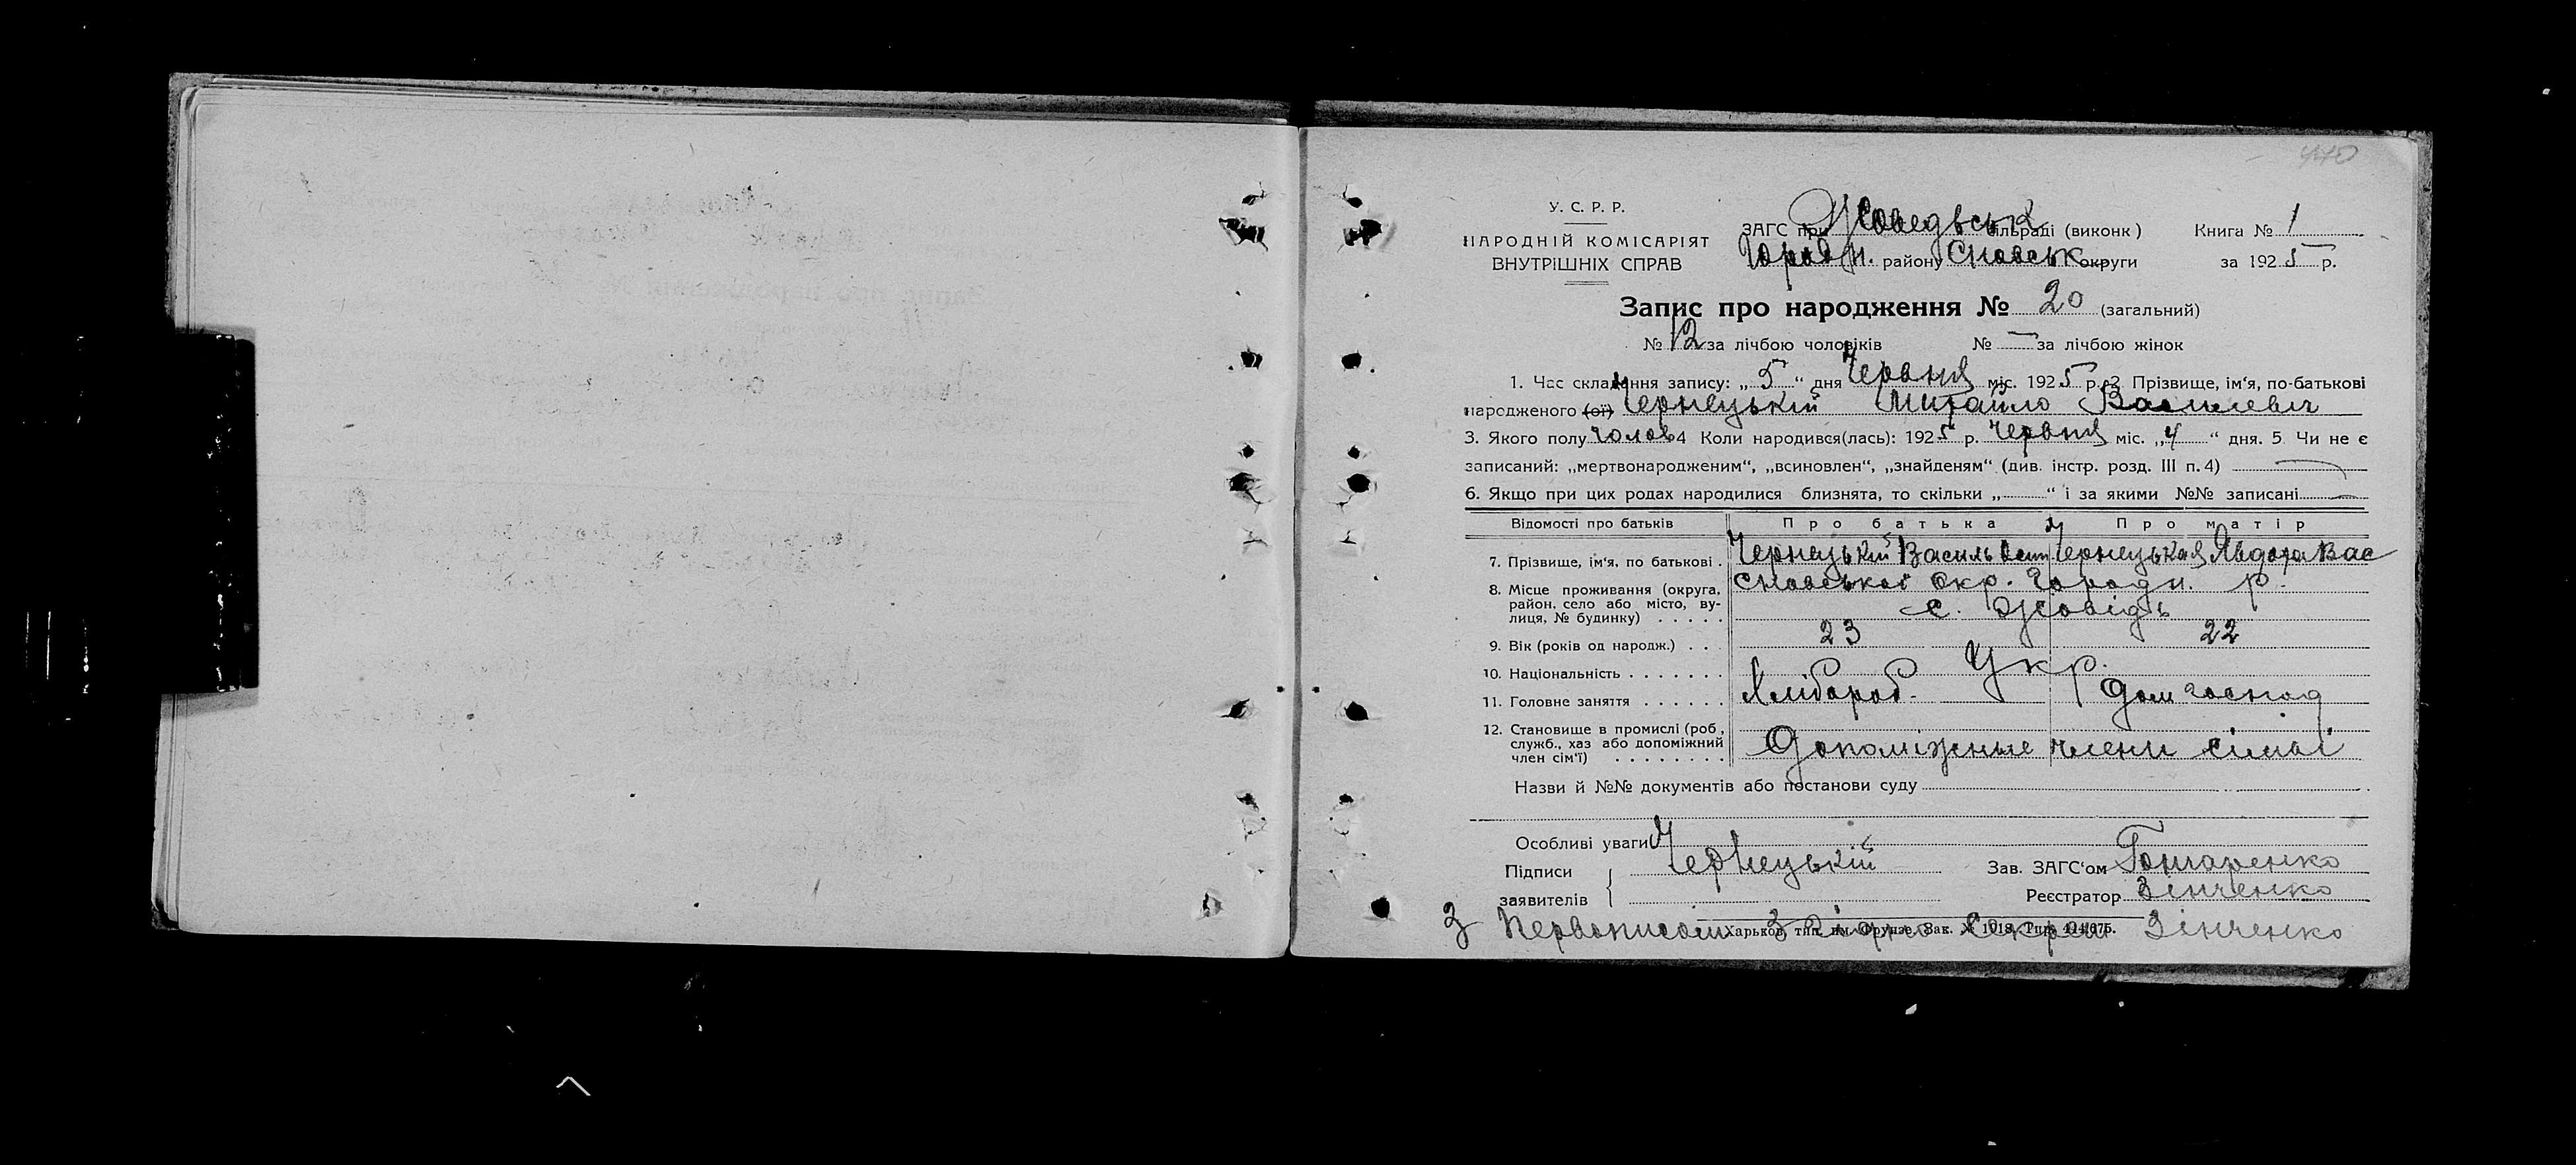 440
У. С. Р. Р.
НАРОДНІЙ КОМІСАРІЯТ
ВНУТРІШНІХ СПРАВ
ЗАГС при Жоведьській сільраді (виконк) Книга № 1
Городн. району Сновськ округи за 1925 р.
Запис про народження № 20 (загальний)
№ 12 за лічбою чоловіків № — за лічбою жінок
1. Час складання запису: „5“ дня Червня міс. 1925 р. 2 Прізвище, ім'я, по-батькові
народженого (ої) Чернецький Михайло Василевич
3. Якого полу чолов 4 Коли народився(лась): 1925 р. Червня міс. „4“ дня. 5. Чи не є
записаний: „мертвонародженим“, „всиновлен“, „знайденям“ (див. інстр. розд. III п. 4) —
6. Якщо при цих родах народилися близнята, то скільки „ “ і за якими №№ записані —
Відомості про батьків Про батька Про матір
7. Прізвище, ім'я, по батькові . Чернецький Василь Чернецькая Явдоха Вас
8. Місце проживання (округа, район, село або місто, вулиця, № будинку) . . . . . Сновської окр. Городн. р.
с. Жовідь
9. Вік (років од народж.) . . . 23 22
10. Національність . . . . . . . Укр.
11. Головне заняття . . . . . . Хлібороб. Дом господ
12. Становище в промислі (роб., служб., хаз або допоміжний член сім'ї) . . . . . . . . Допоміжные члени сімьї
Назви й №№ документів або постанови суду
Особливі уваги
Підписи заявителів { Чернецький
Зав. ЗАГС'ом Гончаренко
Реєстратор Зінченко
З Первописом з вірно Секрет Зінченко
Харьков, тип. им. Фрунзе. Зак. № 1018.